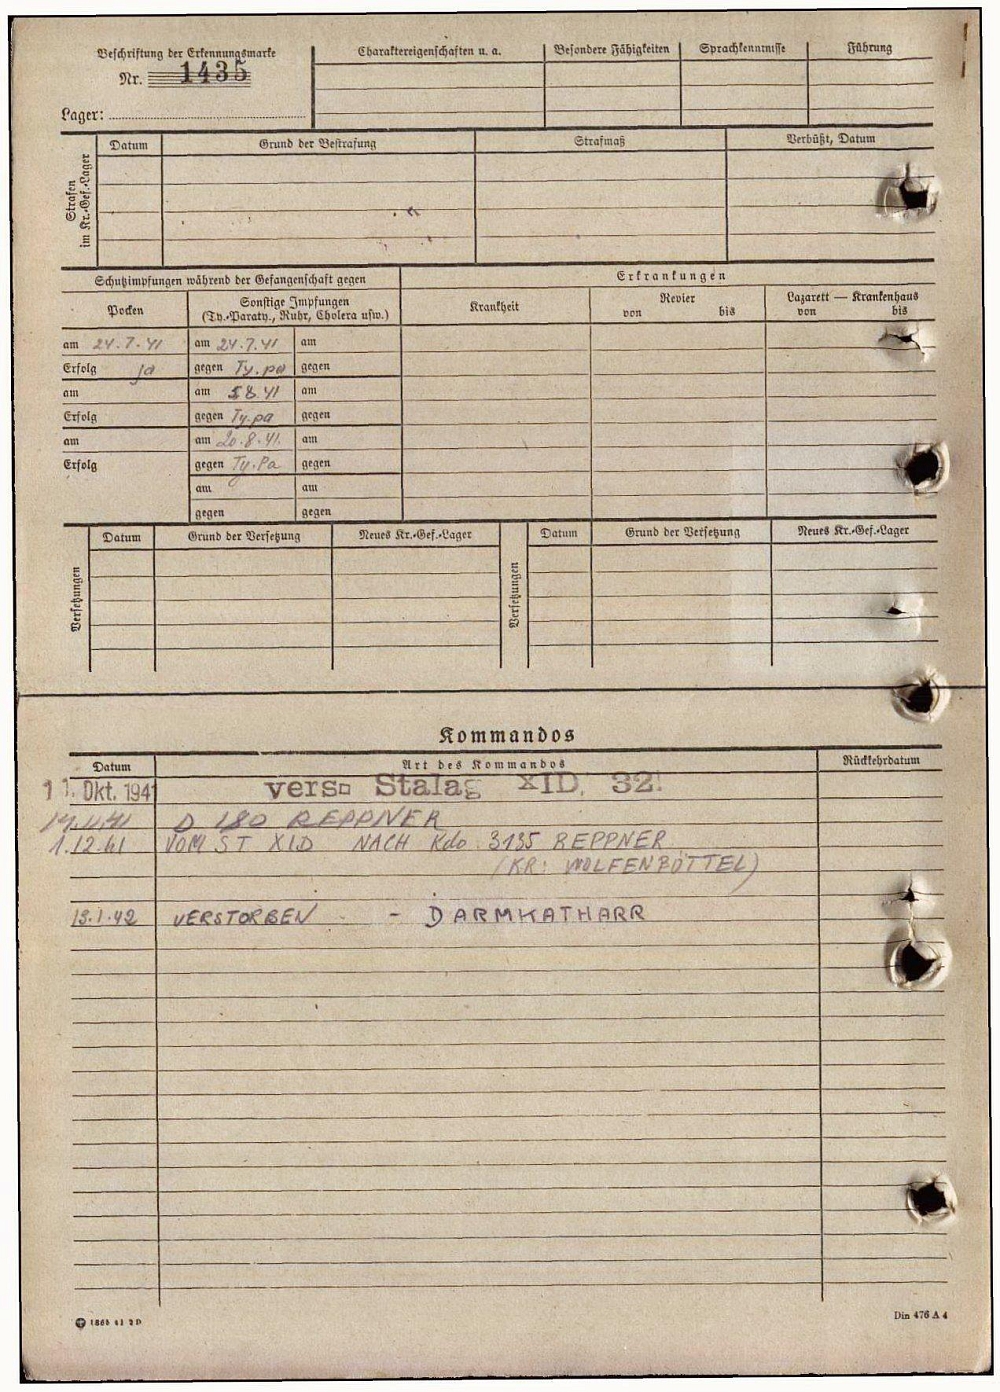 Beschriftung der Erkennungsmarke
Nr. 1435
Lager:
Charaktereigenschaften u. a.
Besondere Fähigkeiten
Sprachkenntnisse
Führung
Strafen
im Kr.-Gef.-Lager
Datum
Grund der Bestrafung
Strafmaß
Verbüßt, Datum
Schutzimpfungen während der Gefangenschaft gegen
Erkrankungen
Pocken
Sonstige Impfungen
(Ty.-Paraty., Ruhr, Cholera usw.)
Krankheit
Revier
von bis
Lazarett — Krankenhaus
von bis
am 24.7.41 am 24.7.41 am
Erfolg ja gegen Ty.pa gegen
am am 5 8.41 am
Erfolg gegen Ty.pa gegen
am am 20.8.41. am
Erfolg gegen Ty.Pa gegen
am am
gegen gegen
Versetzungen
Datum
Grund der Versetzung
Neues Kr.-Gef.-Lager
Versetzungen
Datum
Grund der Versetzung
Neues Kr.-Gef.-Lager
Kommandos
Datum
Art des Kommandos
Rückkehrdatum
11. Okt. 1941 vers. Stalag XI D, 32
D 180 REPPNER
1.12.41 VOM ST XI D NACH Kdo 3135 REPPNER
(KR: WOLFENBÜTTEL)
13.1.42 VERSTORBEN - DARMKATHARR
1865 41 2D
Din 476 A 4